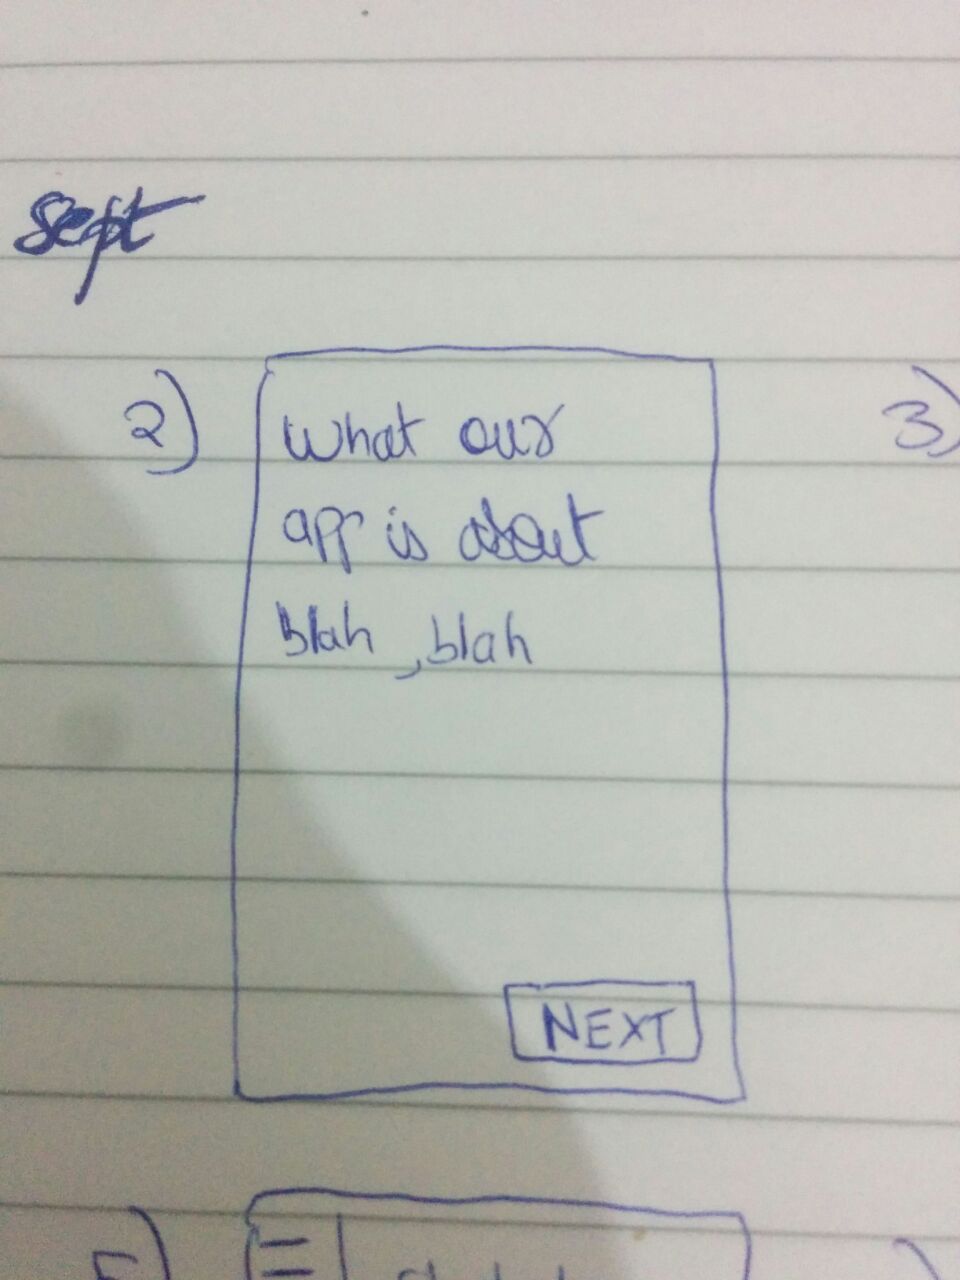 Sept
2)
3)
What our
app is about
blah, blah
NEXT
5)